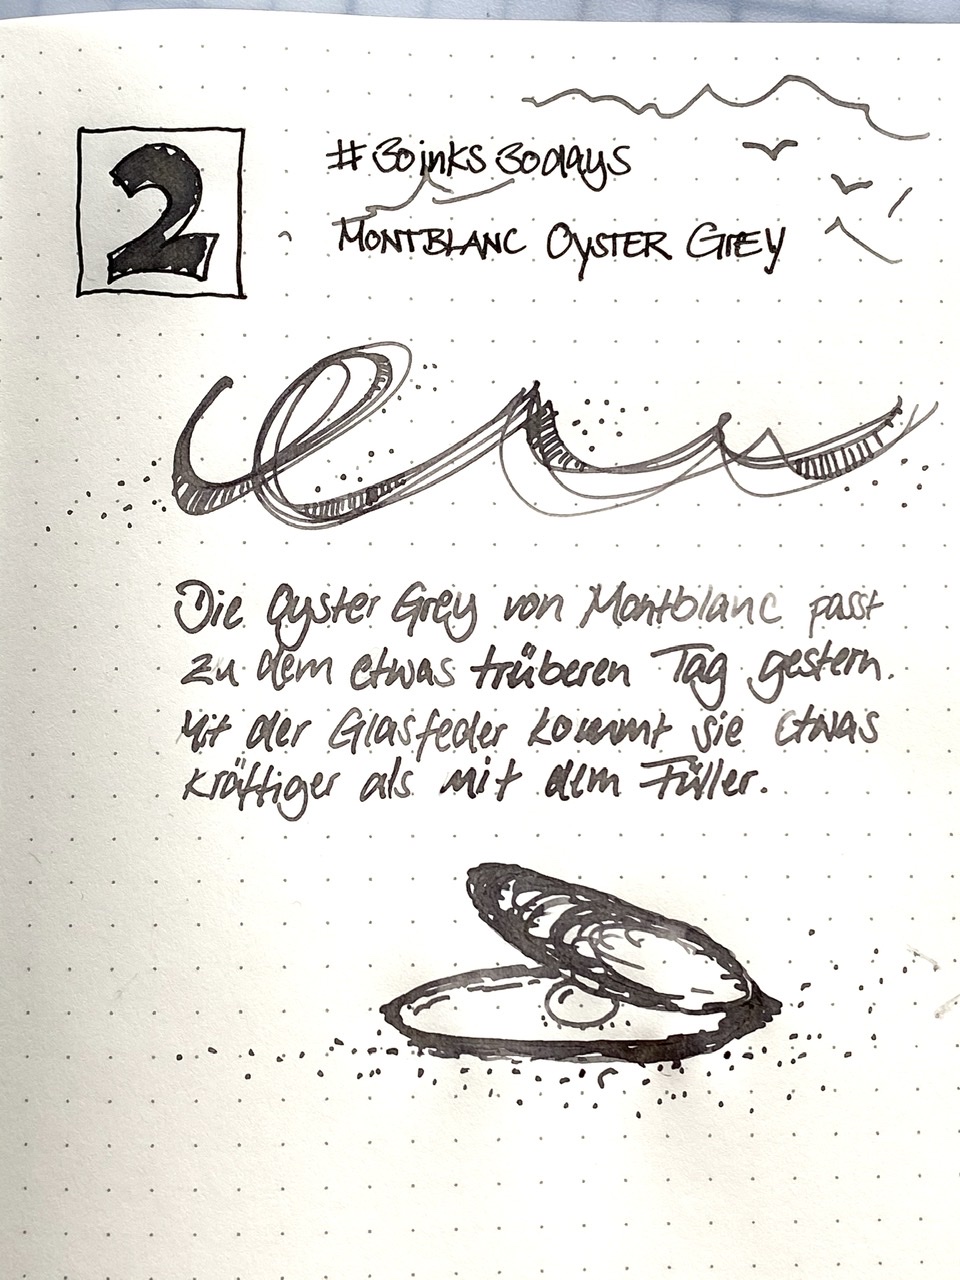 2
#30inks30days
MONTBLANC OYSTER GREY
Die Oyster Grey von Montblanc passt
zu dem etwas trüberen Tag gestern.
Mit der Glasfeder kommt sie etwas
kräftiger als mit dem Füller.